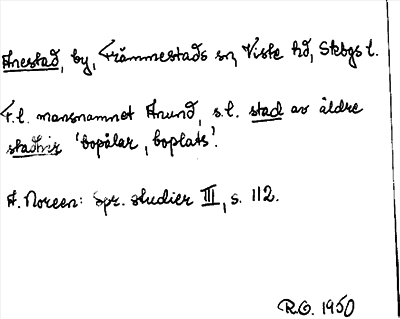 Anestad, by, Främmestads sn, Viste hd, Skbgs l.
F.l. mansnamnet Anund, s.l. stad av äldre
staðir 'bopålar, boplats'.
A. Noreen: Spr. studier III, s. 112.
R.O. 1950